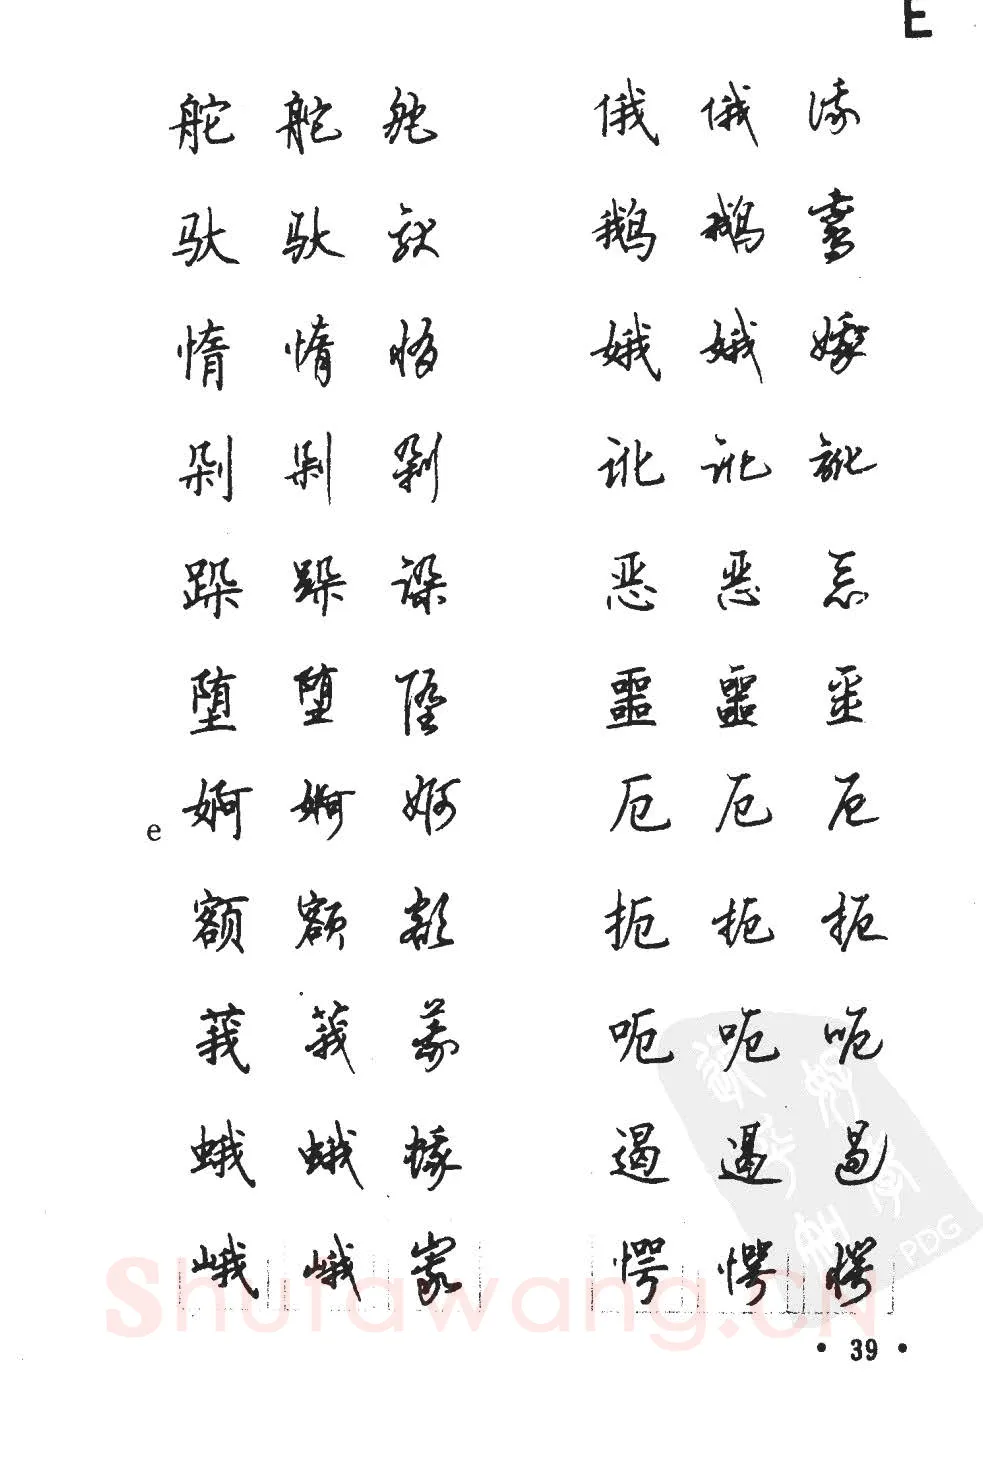 E
舵 舵 舵 俄 俄 俄
驮 驮 驮 鹅 鹅 鹅
惰 惰 惰 娥 娥 娥
剁 剁 剁 讹 讹 讹
跺 跺 跺 恶 恶 恶
堕 堕 堕 噩 噩 噩
e 婀 婀 婀 厄 厄 厄
额 额 额 扼 扼 扼
莪 莪 莪 呃 呃 呃
蛾 蛾 蛾 遏 遏 遏
峨 峨 峨 愕 愕 愕
Shufawang.CN
PDG
• 39 •